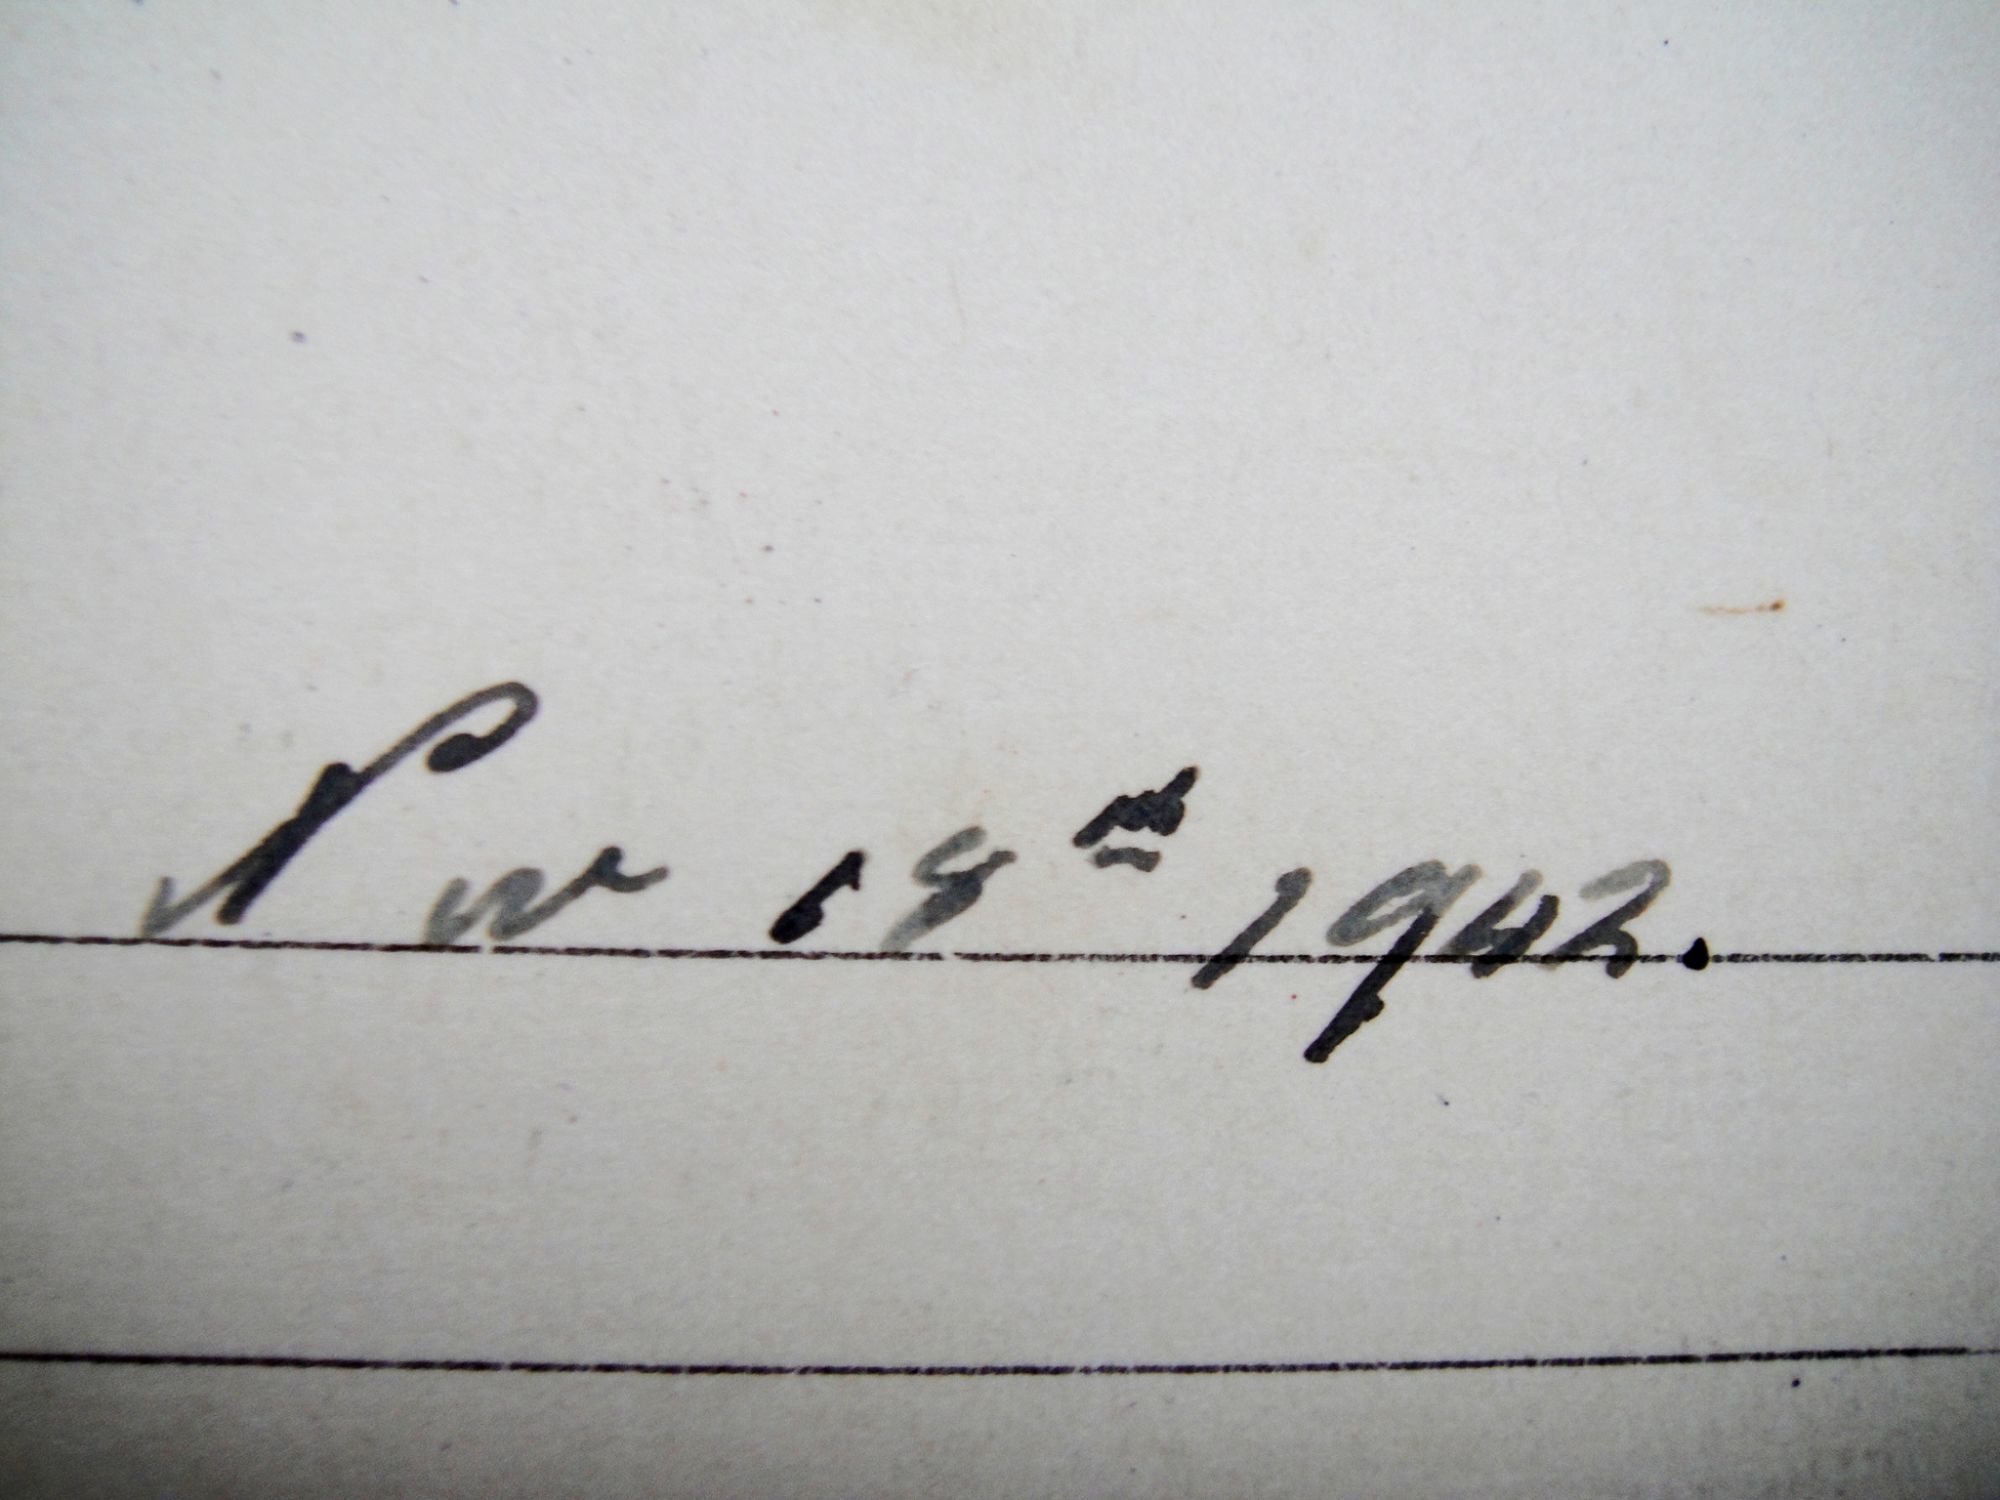 Nov 18th 1942.